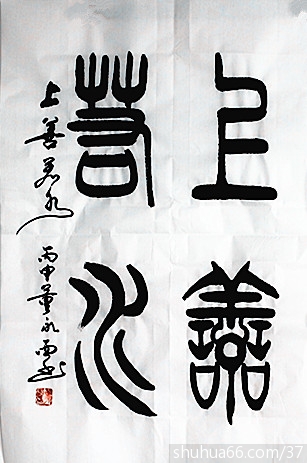 上善
若水
上善若水
丙申董永西
shuhua66.com/37